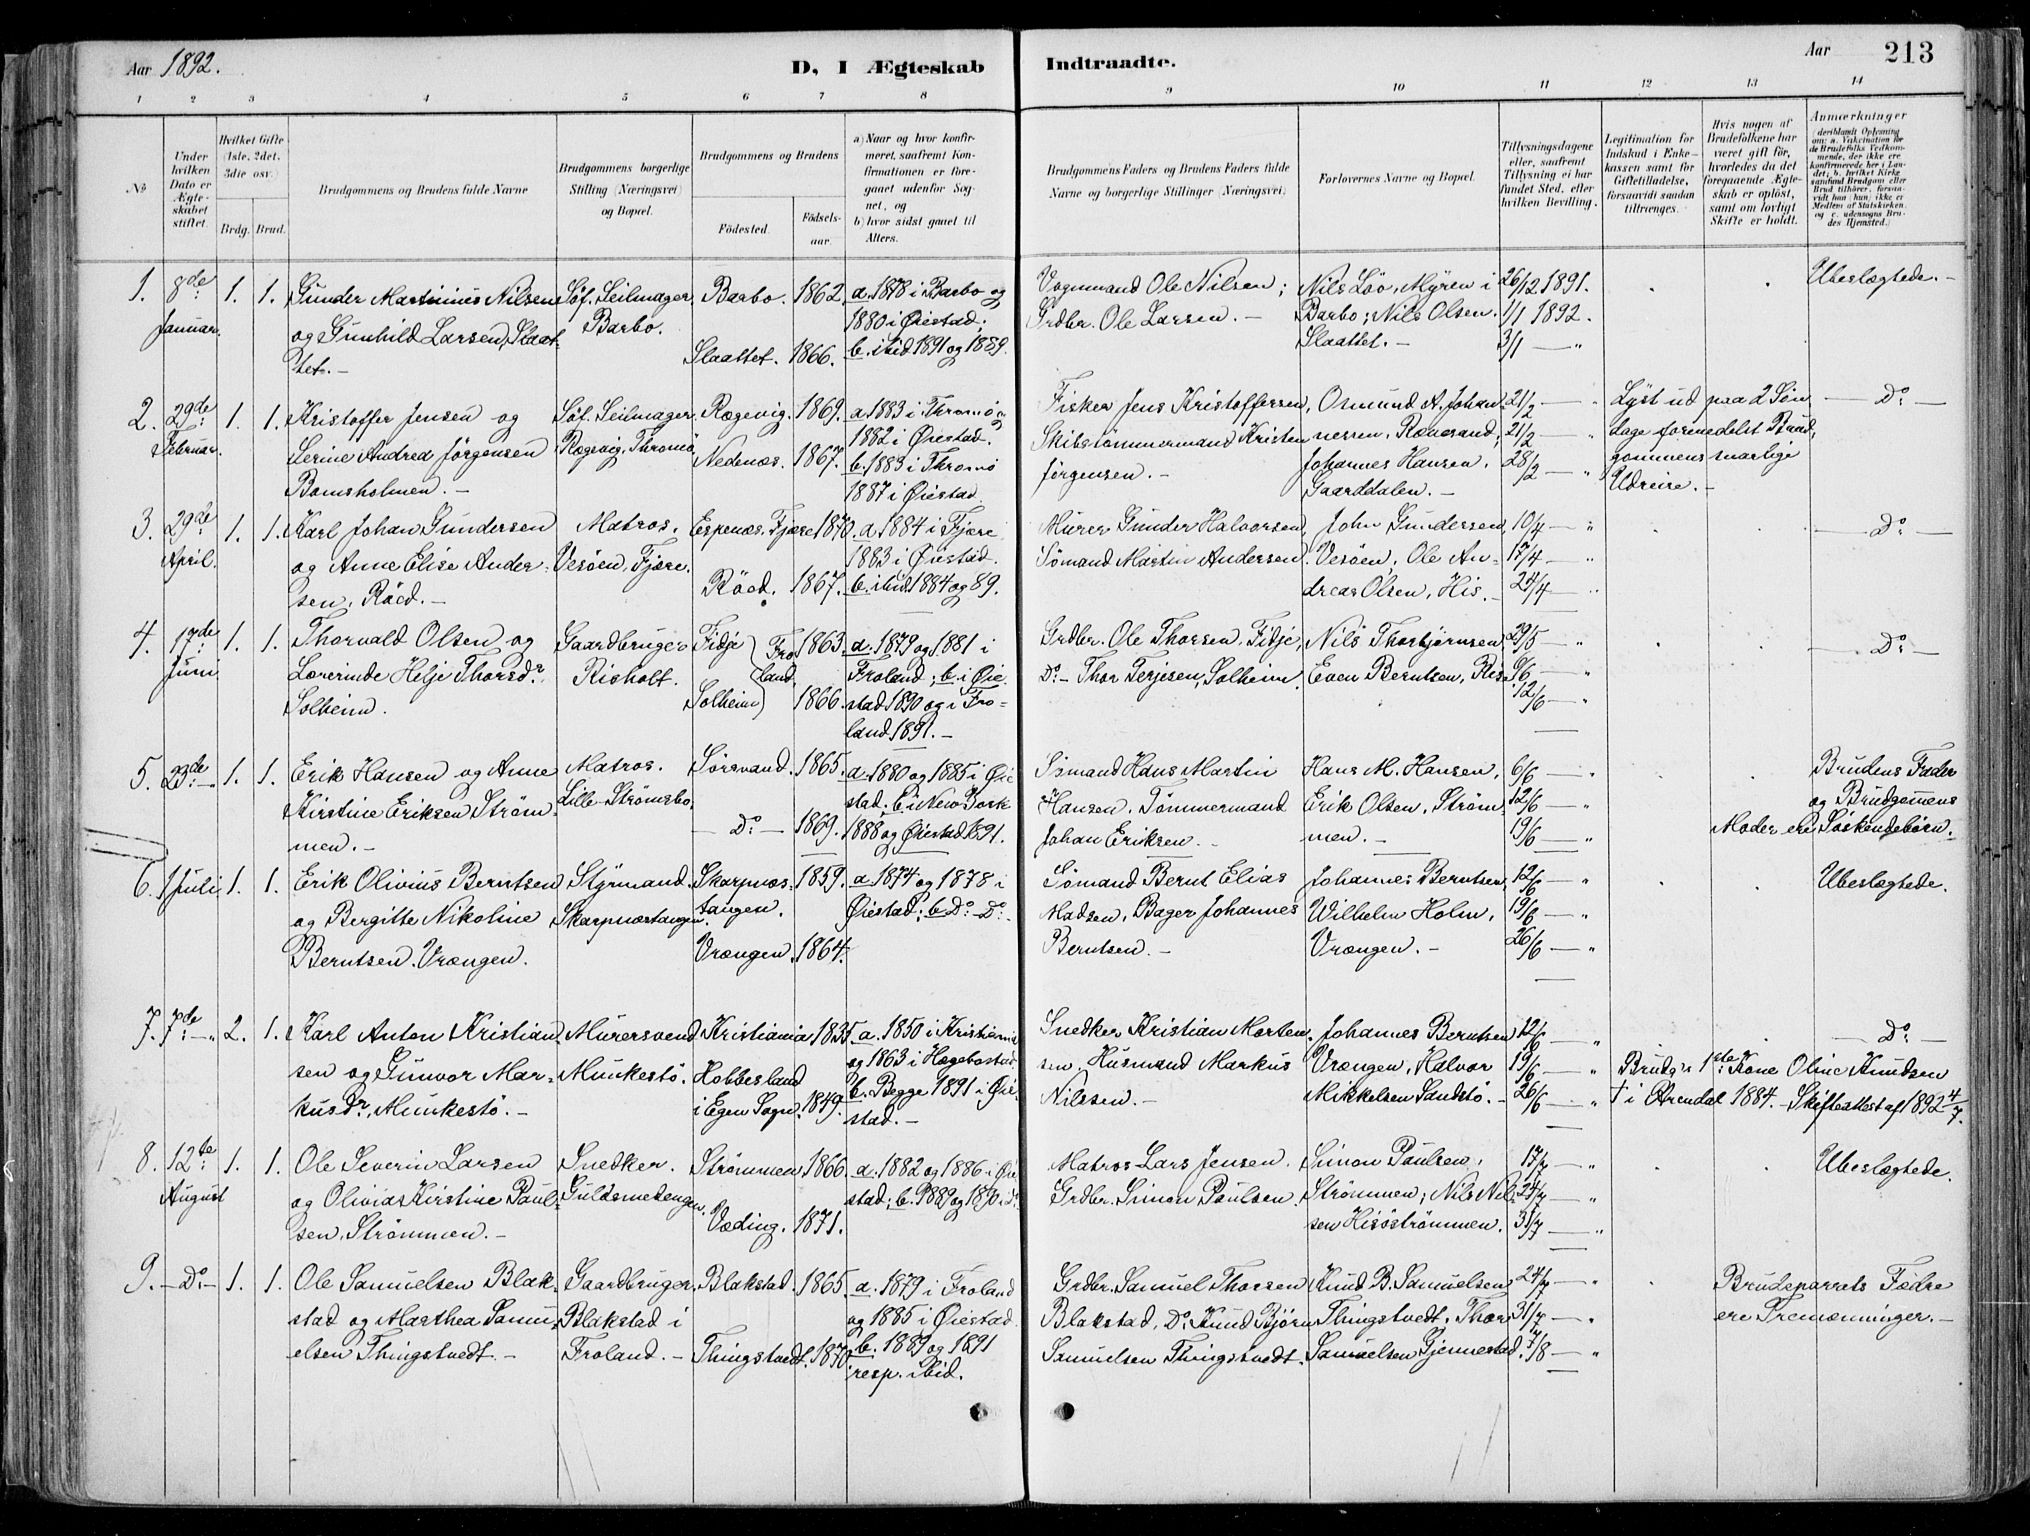 Aar 1892.
D, I Ægteskab Indtraadte.
Aar 213
1 2 3 4 5 6 7 8 9 10 11 12 13 14
№
Under hvilken Dato er Ægteskabet stiftet.
Hvilket Gifte (1ste, 2det, 3die osv.)
Brdg. Brud.
Brudgommens og Brudens fulde Navne
Brudgommens borgerlige Stilling (Næringsvei) og Bopæl.
Brudgommens og Brudens
Födested. Födsels-aar.
a) Naar og hvor konfirmeret, saafremt Konfirmationen er foregaaet udenfor Sognet, og
b) hvor sidst gaaet til Alters.
Brudgommens Faders og Brudens Faders fulde Navne og borgerlige Stillinger (Næringsvei).
Forlovernes Navne og Bopæl.
Tillysningsdagene eller, saafremt Tillysning ei har fundet Sted, efter hvilken Bevilling.
Legitimation for Indskud i Enkekassen samt for Giftetilladelse, forsaavidt saadan tiltrænges.
Hvis nogen af Brudefolkene har været gift før, hvorledes da det foregaaende Ægteskab er opløst, samt om lovligt Skifte er holdt.
Anmærkninger
1. 8de Januar. 1. 1. Gunder Martinius Nilsen og Gunhild Larsen, Slaattet.–
Søf. Seilmager, Barbo.
Barbo. 1862. Slaattet. 1866.
a. 1878 i Barbo og 1880 i Øiestad; b. ibid 1891 og 1889.
Vognmand Ole Nilsen; Grdbr. Ole Larsen.–
Nils Löv, Myren i Barbo; Nils Olsen. Slaattet.–
26/12 1891. 1/1 1892. 3/1 — "
Ubeslægtede.–
2. 29de Februar. 1. 1. Kristoffer Jensen og Serine Andrea Jörgensen Bomsholmen.–
Søf. Seilmager. Rægevig, Thromø
Rægevig. 1869. Nedenæs. 1867.
a 1883 i Thromø 1882 i Øiestad. b. 1883 i Thromø 1887 i Øiestad.
Fisker Jens Kristoffersen, Skibstömmermand Kristen Jörgensen.–
Osmund A. Johannessen, Rævesand, Johannes Hansen, Gaarddalen.–
21/2 — " 21/2 — " 28/2 — "
Lyst ud paa 2 Söndage formedelst Brudgommens snarlige Udreise.–
— Do: —
3. 29de April. 1. 1. Karl Johan Gundersen og Anne Elise Andersen, Röed.–
Matros. Vesöen, Fjære.
Espenæs, Fjære 1870. Röed. 1867.
a. 1884 i Fjære 1883 i Øiestad. b. ibid. 1884 og 89.
Murer Gunder Halvorsen, Sømand Martin Andersen.
John Gundersen, Vesöen; Ole Andreas Olsen, His.
10/4 — " 17/4 — " 24/4 — "
— Do: —
4. 17de Juni. 1. 1. Thorvald Olsen og Lærerinde Helje Thorsdr. Solheim.
Gaardbruger Risholt.
Fidje Solheim } Froland. 1863. 1866.
a. 1879 og 1881 i Froland; b. i Øiestad 1890 og i Froland 1891.–
Grdbr. Ole Thorsen, Fidje, Do.– Thor Terjesen, Solheim.
Nils Thorbjörnsen, Even Berntsen, Ris
29/5 — " 6/6 — " 12/6 — "
— Do: —
5. 23de –"– 1. 1. Erik Hansen og Anne Kirstine Eriksen Strömmen.–
Matros. Lille-Strömsbo,
Sörsvand. 1865. — Do: — 1869.
a. 1880 og 1885 i Øiestad; b. i New York 1888 og Øiestad 1891.
Sømand Hans Martin Hansen. Tömmermand Johan Eriksen.–
Hans M. Hansen, Erik Olsen, Strömmen.–
6/6 — " 12/6 — " 19/6 — "
Brudens Fader og Brudgommens Moder ere Söskendebörn.
6. 1 Juli 1. 1. Erik Olivius Berntsen og Bergitte Nikoline Berntsen. Vrængen.
Styrmand. Skarpnæstangen,
Skarpnæstangen. 1859. Vrængen. 1864.
a 1874 og 1878 i Øiestad; b Do: Do:
Sømand Bernt Elias Madsen, Bager Johannes Berntsen.–
Johannes Berntsen, Wilhelm Holm, Vrængen.–
12/6 — " 19/6 — " 26/6 — "
Ubeslægtede.
7. 7de –"– 2. 1. Karl Anton Kristiansen og Gunvor Markusdr. Munkestö.–
Murersvend. Munkestö.
Kristiania 1835 Hobbesland i Egen Sogn. 1849.
a. 1850 i Kristiania og 1863 i Hægebostad. b. Begge 1891 i Øiestad.–
Snedker Kristian Mortensen, Husmand Markus Nilssen.–
Johannes Berntsen Vrængen, Halvor Mikkelsen Sandstö.–
12/6 — " 19/6 — " 26/6 — "
— Do: —
Brudg. 1ste Kone Oline Knudsen † i Arendal 1884. – Skifteattest af 1892 4/7.
8. 12te August 1. 1. Ole Severin Larsen og Olivia Kirstine Paulsen, Strömmen.–
Snedker. Guldsmedengen,
Strömmen 1866. Væding. 1871.
a. 1882 og 1886 i Øiestad; b. 1889 og 1890 i Do
Matros Lars Jensen. Grdbr. Simon Paulsen.
Simon Paulsen, Strömmen; Nils Nilsen Hisöströmmen.
17/7 — " 24/7 — " 31/7 — "
Ubeslægtede.
9. – Do – 1. 1. Ole Samuelsen Blakstad og Marthea Samuelsen Thingstvedt.–
Gaardbruger. Blakstad i Froland.–
Blakstad. 1865. Thingstvedt. 1870
a. 1879 i Froland og 1885 i Øiestad b. 1889 og 1891 resp. ibid.
Grdbr. Samuel Thorsen Blakstad. Do: Knud Björn Samuelsen Thingstvedt.
Knud B. Samuelsen Thingstvedt, Thor Samuelsen Gjennestad.
24/7 — " 31/7 — " 7/8 — "
Brudeparrets Fædre ere Tremænninger.–